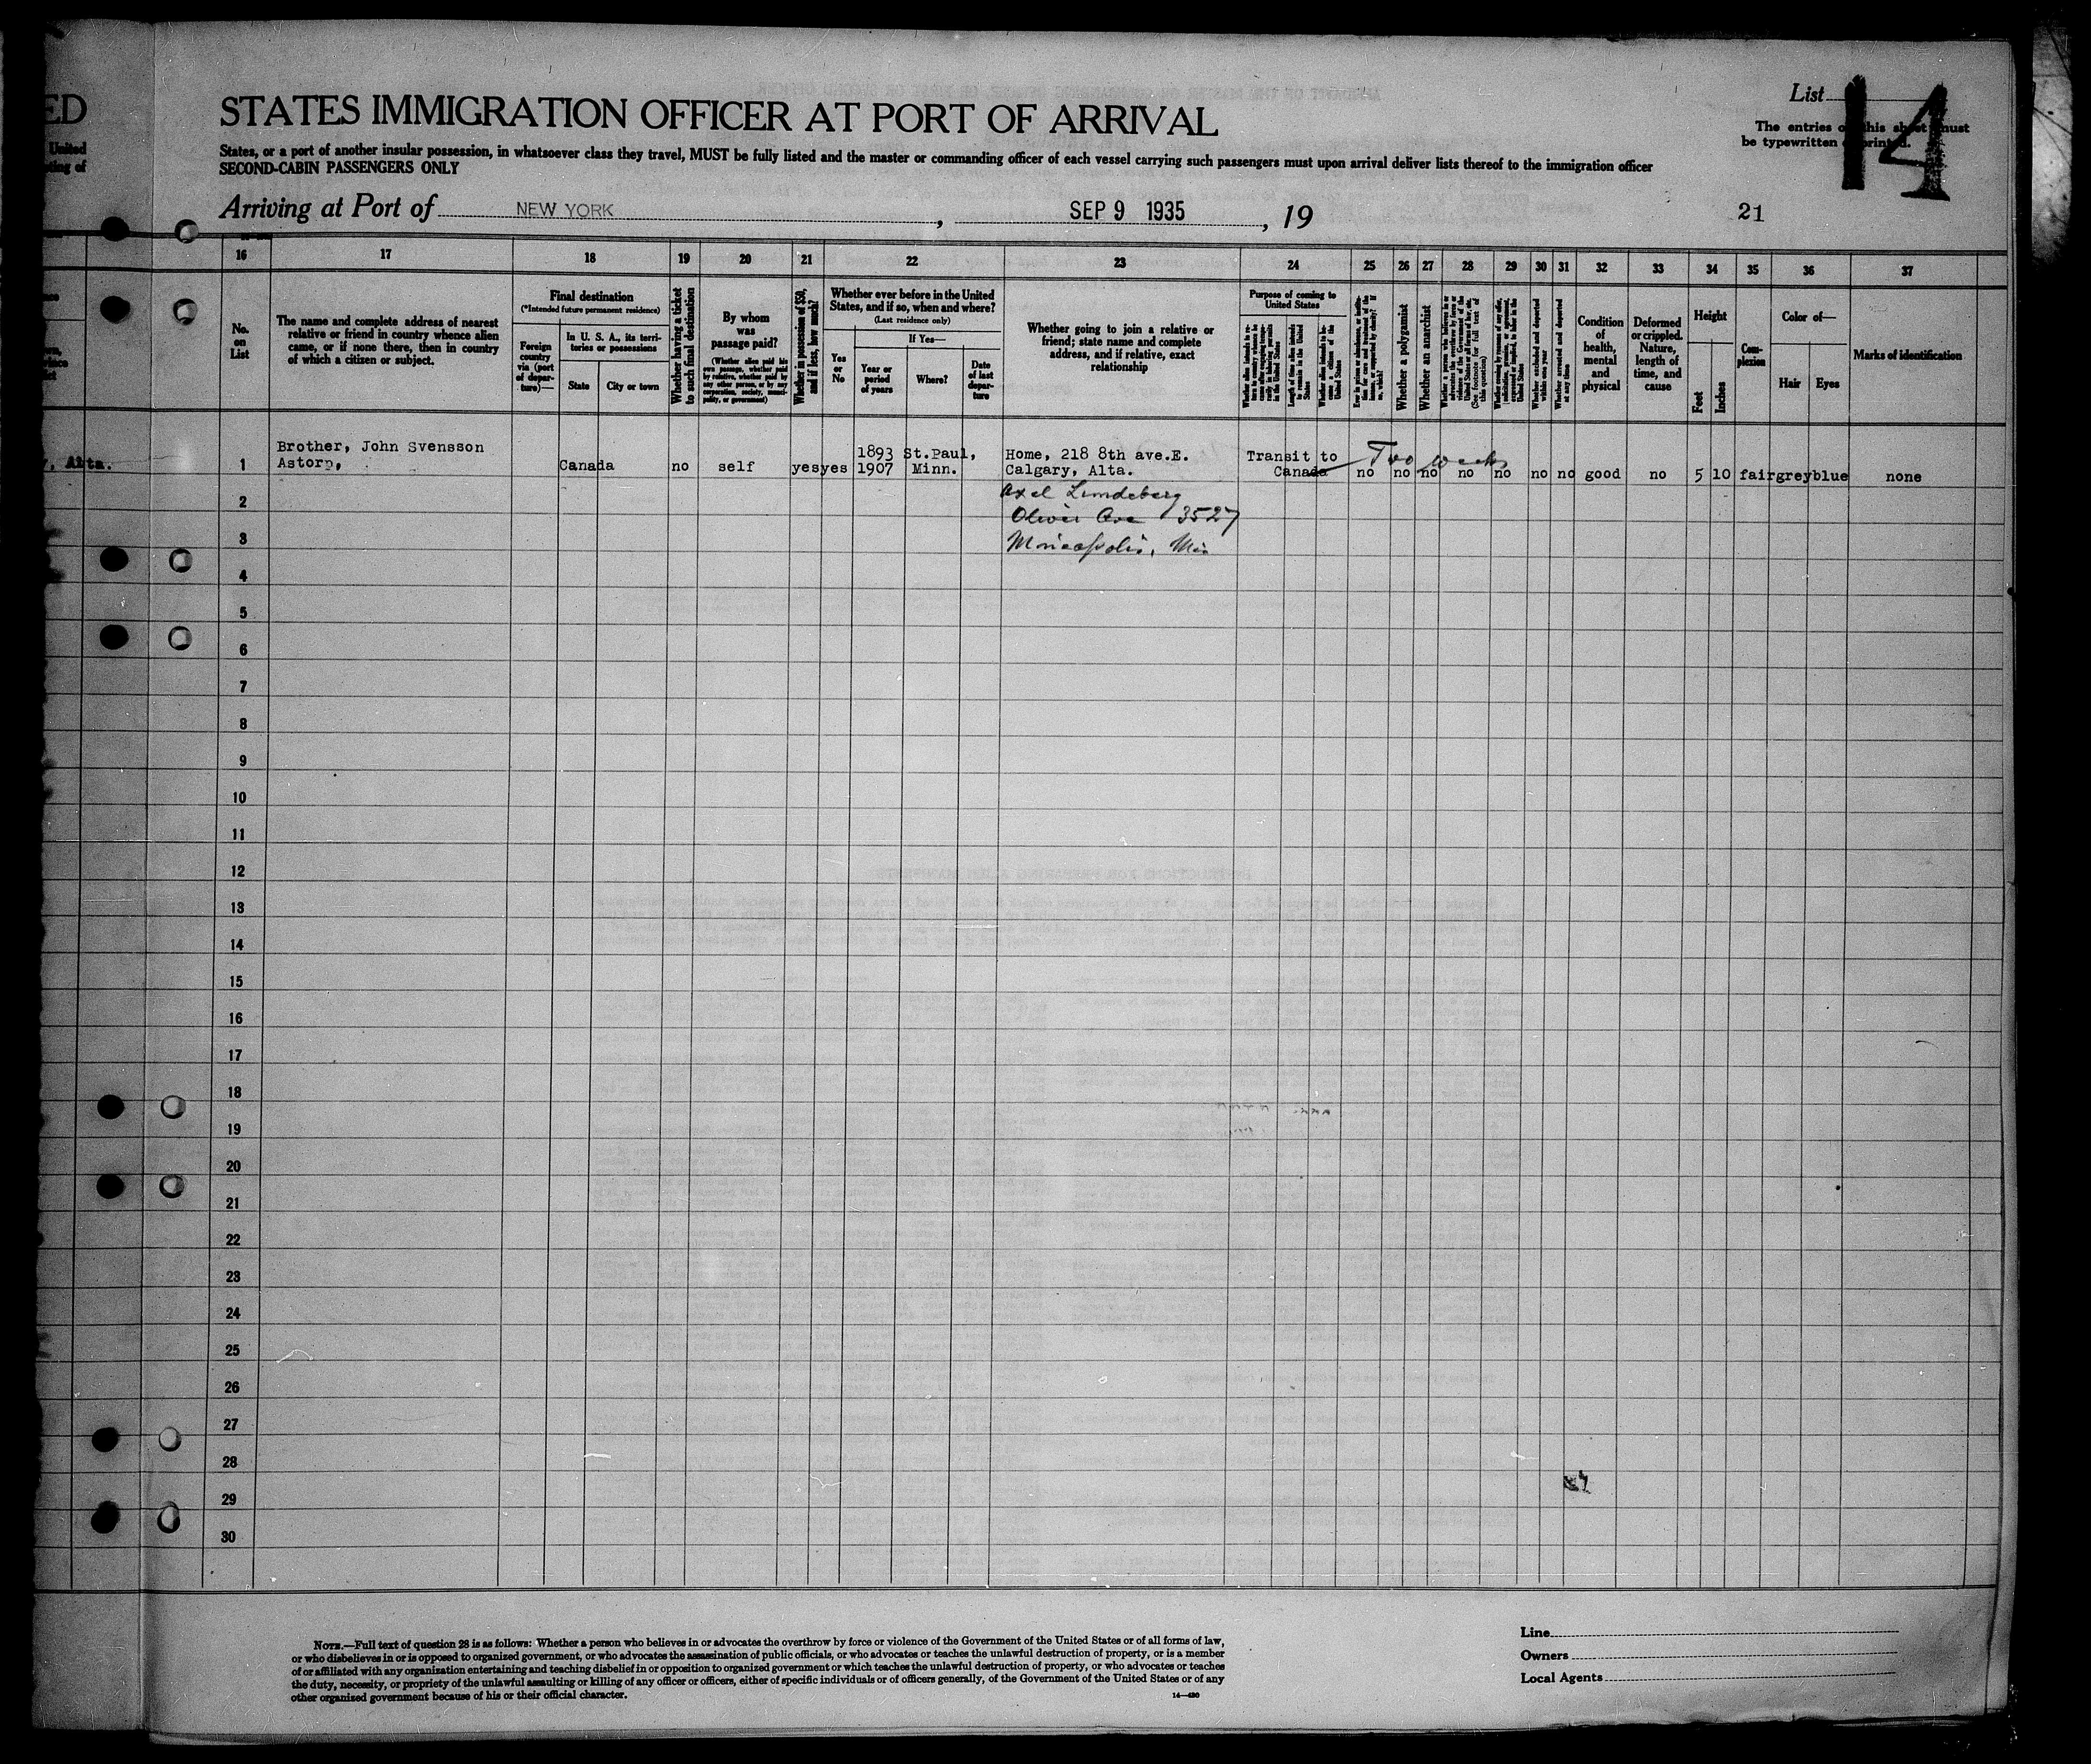 ED
United
ting of
STATES IMMIGRATION OFFICER AT PORT OF ARRIVAL
List 14
The entries on this sheet must
be typewritten or printed.
States, or a port of another insular possession, in whatsoever class they travel, MUST be fully listed and the master or commanding officer of each vessel carrying such passengers must upon arrival deliver lists thereof to the immigration officer
SECOND-CABIN PASSENGERS ONLY
Arriving at Port of NEW YORK, SEP 9 1935, 19
21
16 17 18 19 20 21 22 23 24 25 26 27 28 29 30 31 32 33 34 35 36 37
No. on List
The name and complete address of nearest
relative or friend in country whence alien
came, or if none there, then in country
of which a citizen or subject.
Final destination
(*Intended future permanent residence)
Foreign country via (port of departure)—
In U. S. A., its territories or possessions
State
City or town
Whether having a ticket to such final destination
By whom was passage paid?
(Whether alien paid his own passage, whether paid by relative, whether paid by any other person, or by any corporation, society, municipality, or government)
Whether in possession of $50, and if less, how much?
Whether ever before in the United
States, and if so, when and where?
(Last residence only)
Yes or No
If Yes—
Year or period of years
Where?
Date of last departure
Whether going to join a relative or
friend; state name and complete
address, and if relative, exact
relationship
Purpose of coming to
United States
Whether a polygamist
Whether an anarchist
(See footnote for full text of this question)
Whether excluded and deported within one year
Whether arrested and deported at any time
Condition of health, mental and physical
Deformed or crippled. Nature, length of time, and cause
Height
Feet
Inches
Complexion
Color of—
Hair
Eyes
Marks of identification
, Alta.
1 Brother, John Svensson
Astorp,
Canada no self yes yes 1893 St.Paul,
1907 Minn.
Home, 218 8th ave.E.
Calgary, Alta.
Transit to
Canada
Two weeks
no no no no no no no good no 5 10 fair grey blue none
Axel Lundeberg
Oliver Ave 3527
Mineapolis, Min
2
3
4
5
6
7
8
9
10
11
12
13
14
15
16
17
18
19
20
21
22
23
24
25
26
27
28
29
30
NOTE.—Full text of question 28 is as follows: Whether a person who believes in or advocates the overthrow by force or violence of the Government of the United States or of all forms of law,
or who disbelieves in or is opposed to organized government, or who advocates the assassination of public officials, or who advocates or teaches the unlawful destruction of property, or is a member
of or affiliated with any organization entertaining and teaching disbelief in or opposition to organized government or which teaches the unlawful destruction of property, or who advocates or teaches
the duty, necessity, or propriety of the unlawful assaulting or killing of any officer or officers, either of specific individuals or of officers generally, of the Government of the United States or of any
other organized government because of his or their official character.
14—420
Line
Owners
Local Agents